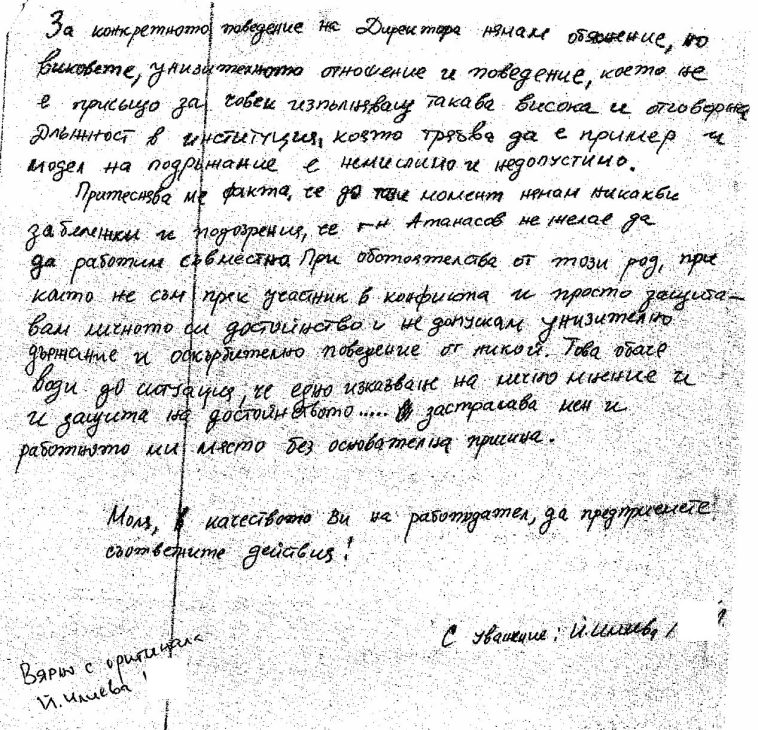 За конкретното поведение на Директора нямам обяснение, но
виковете, унизителното отношение и поведение, което не
е присъщо за човек изпълняващ такава висока и отговорна
длъжност в институция, която трябва да е пример и
модел на подражание е немислимо и недопустимо.
Притеснява ме факта, че до този момент нямам никакви
забележки и подозрения, че г-н Атанасов не желае да
да работим съвместно. При обстоятелства от този род, при
които не съм пряк участник в конфликта и просто защита-
вам личното си достойнство и не допускам унизително
държание и оскърбително поведение от никой. Това обаче
води до ситуация, че едно изказване на лично мнение и
и защита на достойнството..... застрашава мен и
работното ми място без основателна причина.
Моля, в качеството Ви на работодател, да предприемете
съответните действия!
С уважение: Й. Илиева /
Вярно с оригинала
Й. Илиева!